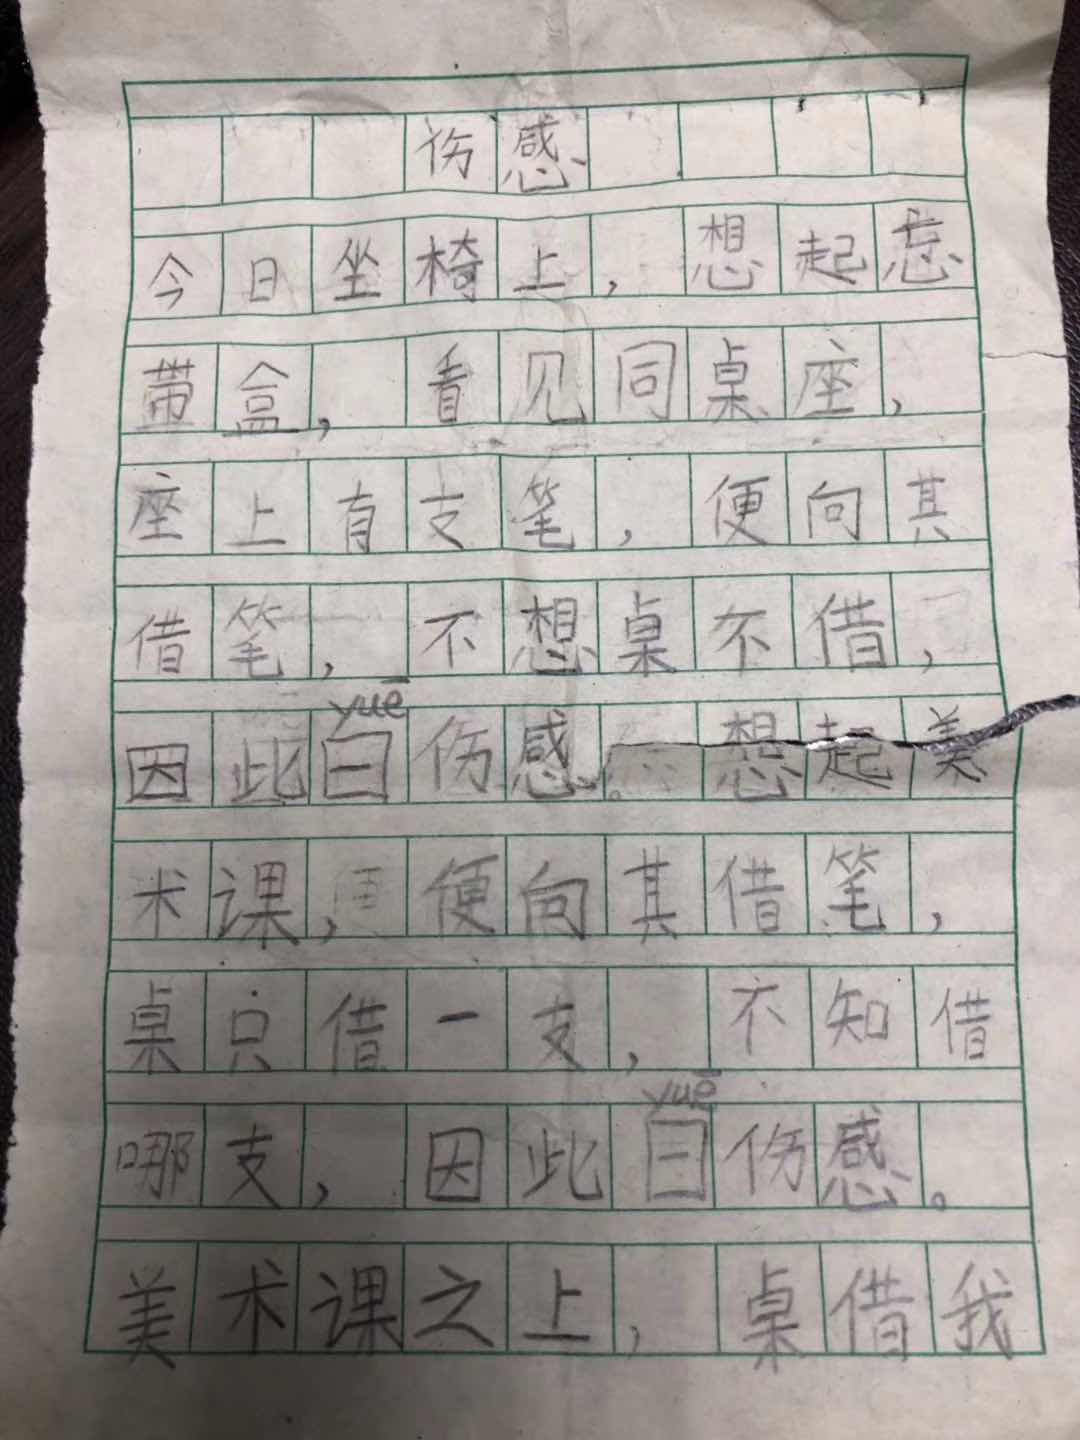 伤感
今日坐椅上，想起忘
带盒，看见同桌座，
座上有支笔，便向其
借笔，不想桌不借，
yuē
因此曰伤感。想起美
术课，便向其借笔，
桌只借一支，不知借
yuē
哪支，因此曰伤感。
美术课之上，桌借我